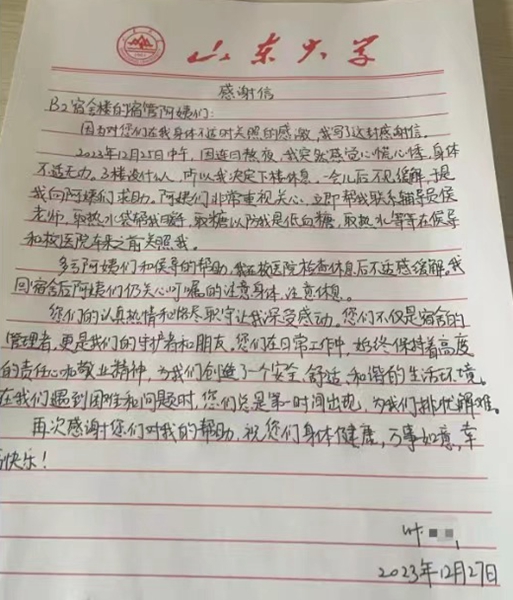 山东大学
感谢信
B2宿舍楼的宿管阿姨们：
因为对您们在我身体不适时关照的感激，我写了这封感谢信。
2023年12月25日中午，因连日熬夜，我突然感觉心慌心悸，身体
不适无力，3楼没什么人，所以我决定下楼休息，一会儿后不见缓解，于是
我向阿姨们求助。阿姨们非常重视关心，立即帮我联系辅导员侯
老师，取热水袋帮我暖手，取糖以防我是低血糖，取热水等等在侯导
和校医院车来之前关照我。
多亏阿姨们和侯导的帮助，我在校医院检查休息后不适感缓解。我
回宿舍后阿姨们仍关心叮嘱的注意身体，注意休息。
您们的认真热情和恪尽职守让我深受感动。您们不仅是宿舍的
管理者，更是我们的守护者和朋友。您们在日常工作中，始终保持着高度
的责任心和敬业精神，为我们创造了一个安全、舒适、和谐的生活环境。
在我们遇到困难和问题时，您们总是第一时间出现，为我们排忧解难。
再次感谢您们对我的帮助，祝您们身体健康，万事如意，幸
快乐！
叶
2023年12月27日